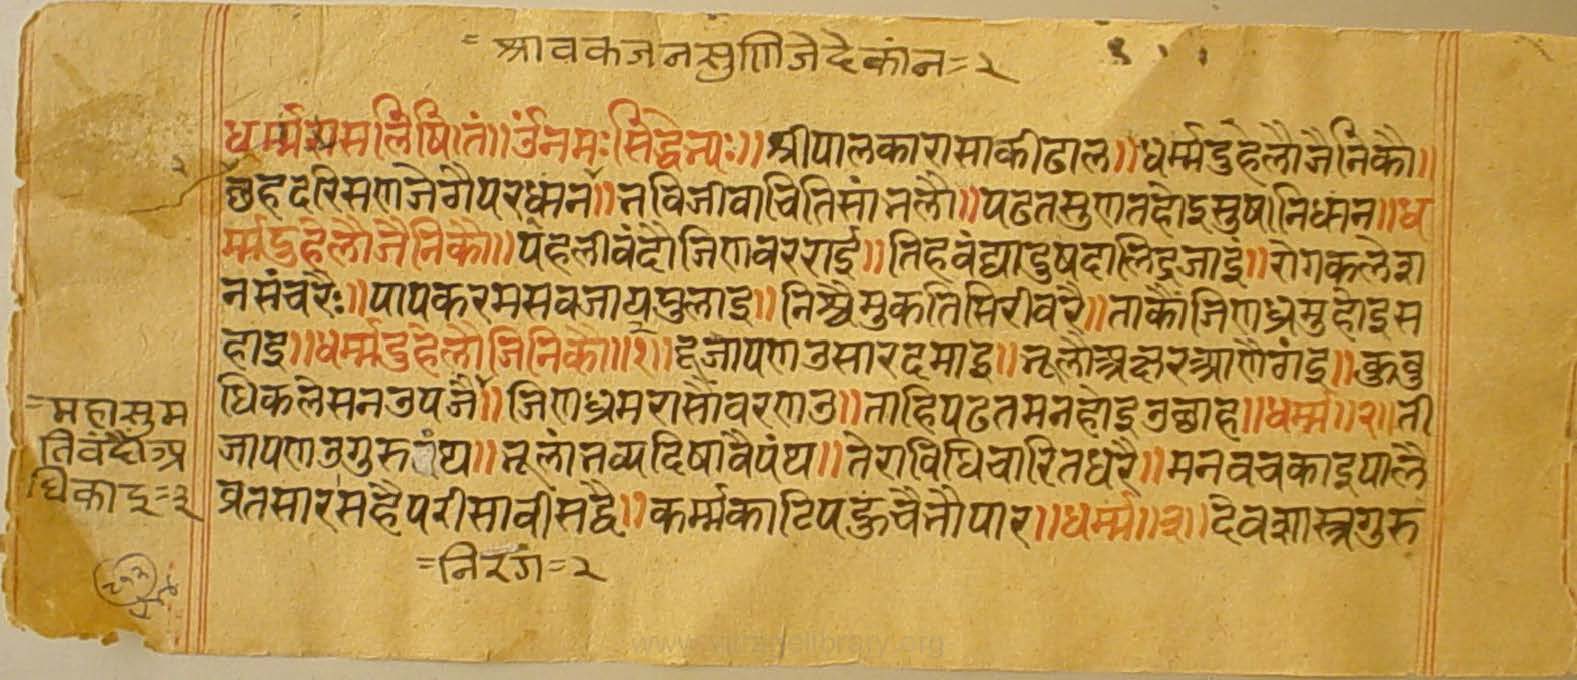 = श्रावकजनसुणिजेदेकांन = २
धर्म्मरासलिषितं॥ र्उंनमः सिद्धेभ्यः॥ श्रीपालकारासाकीढाल॥ धर्म्मदुहेलौजैनिकौ॥
छहदरिसणजैगैपरध्मन॥ नविजीवाचितिसांनलौ॥ पढतसुणतहोइसुषांनिध्मन॥ ध
र्म्मदुहेलौजैनिकौ॥ पंहलीवंदौजिणवरराई॥ तिहवंद्यादुषदालिद्रजाइं॥ रोगकलेश
नसंचरैः॥ पापकरमसवजायघुलाइ॥ निश्चैमुकतिसिरीवरै॥ ताकौजिणध्रमुहोइस
हाइ॥ धर्म्मदुहेलौजिनिकौ॥१॥ दूजापणउसारदमाइ॥ भूलौअक्षरआणैगंइ॥ कुबु
धिकलेसनउपजै॥ जिणध्रमरासौवरणउ॥ ताहिपढतमनहोइउछाह॥ धर्म्म॥२॥ ती
जापणउगुरु ंथ॥ भूलांनव्यदिषावैपंथ॥ तेराविधिचारितधरै॥ मनवचकाइपालै
व्रतसारसंहैपरीसावींसद्वै॥ कर्म्मकाटिपहुंचैनौपार॥ धर्म्म॥३॥ देवशास्त्रगुरु
= महासुम
तिवंदौंअ
धिकाइ = ३
= निरग = २
www.jainelibrary.org